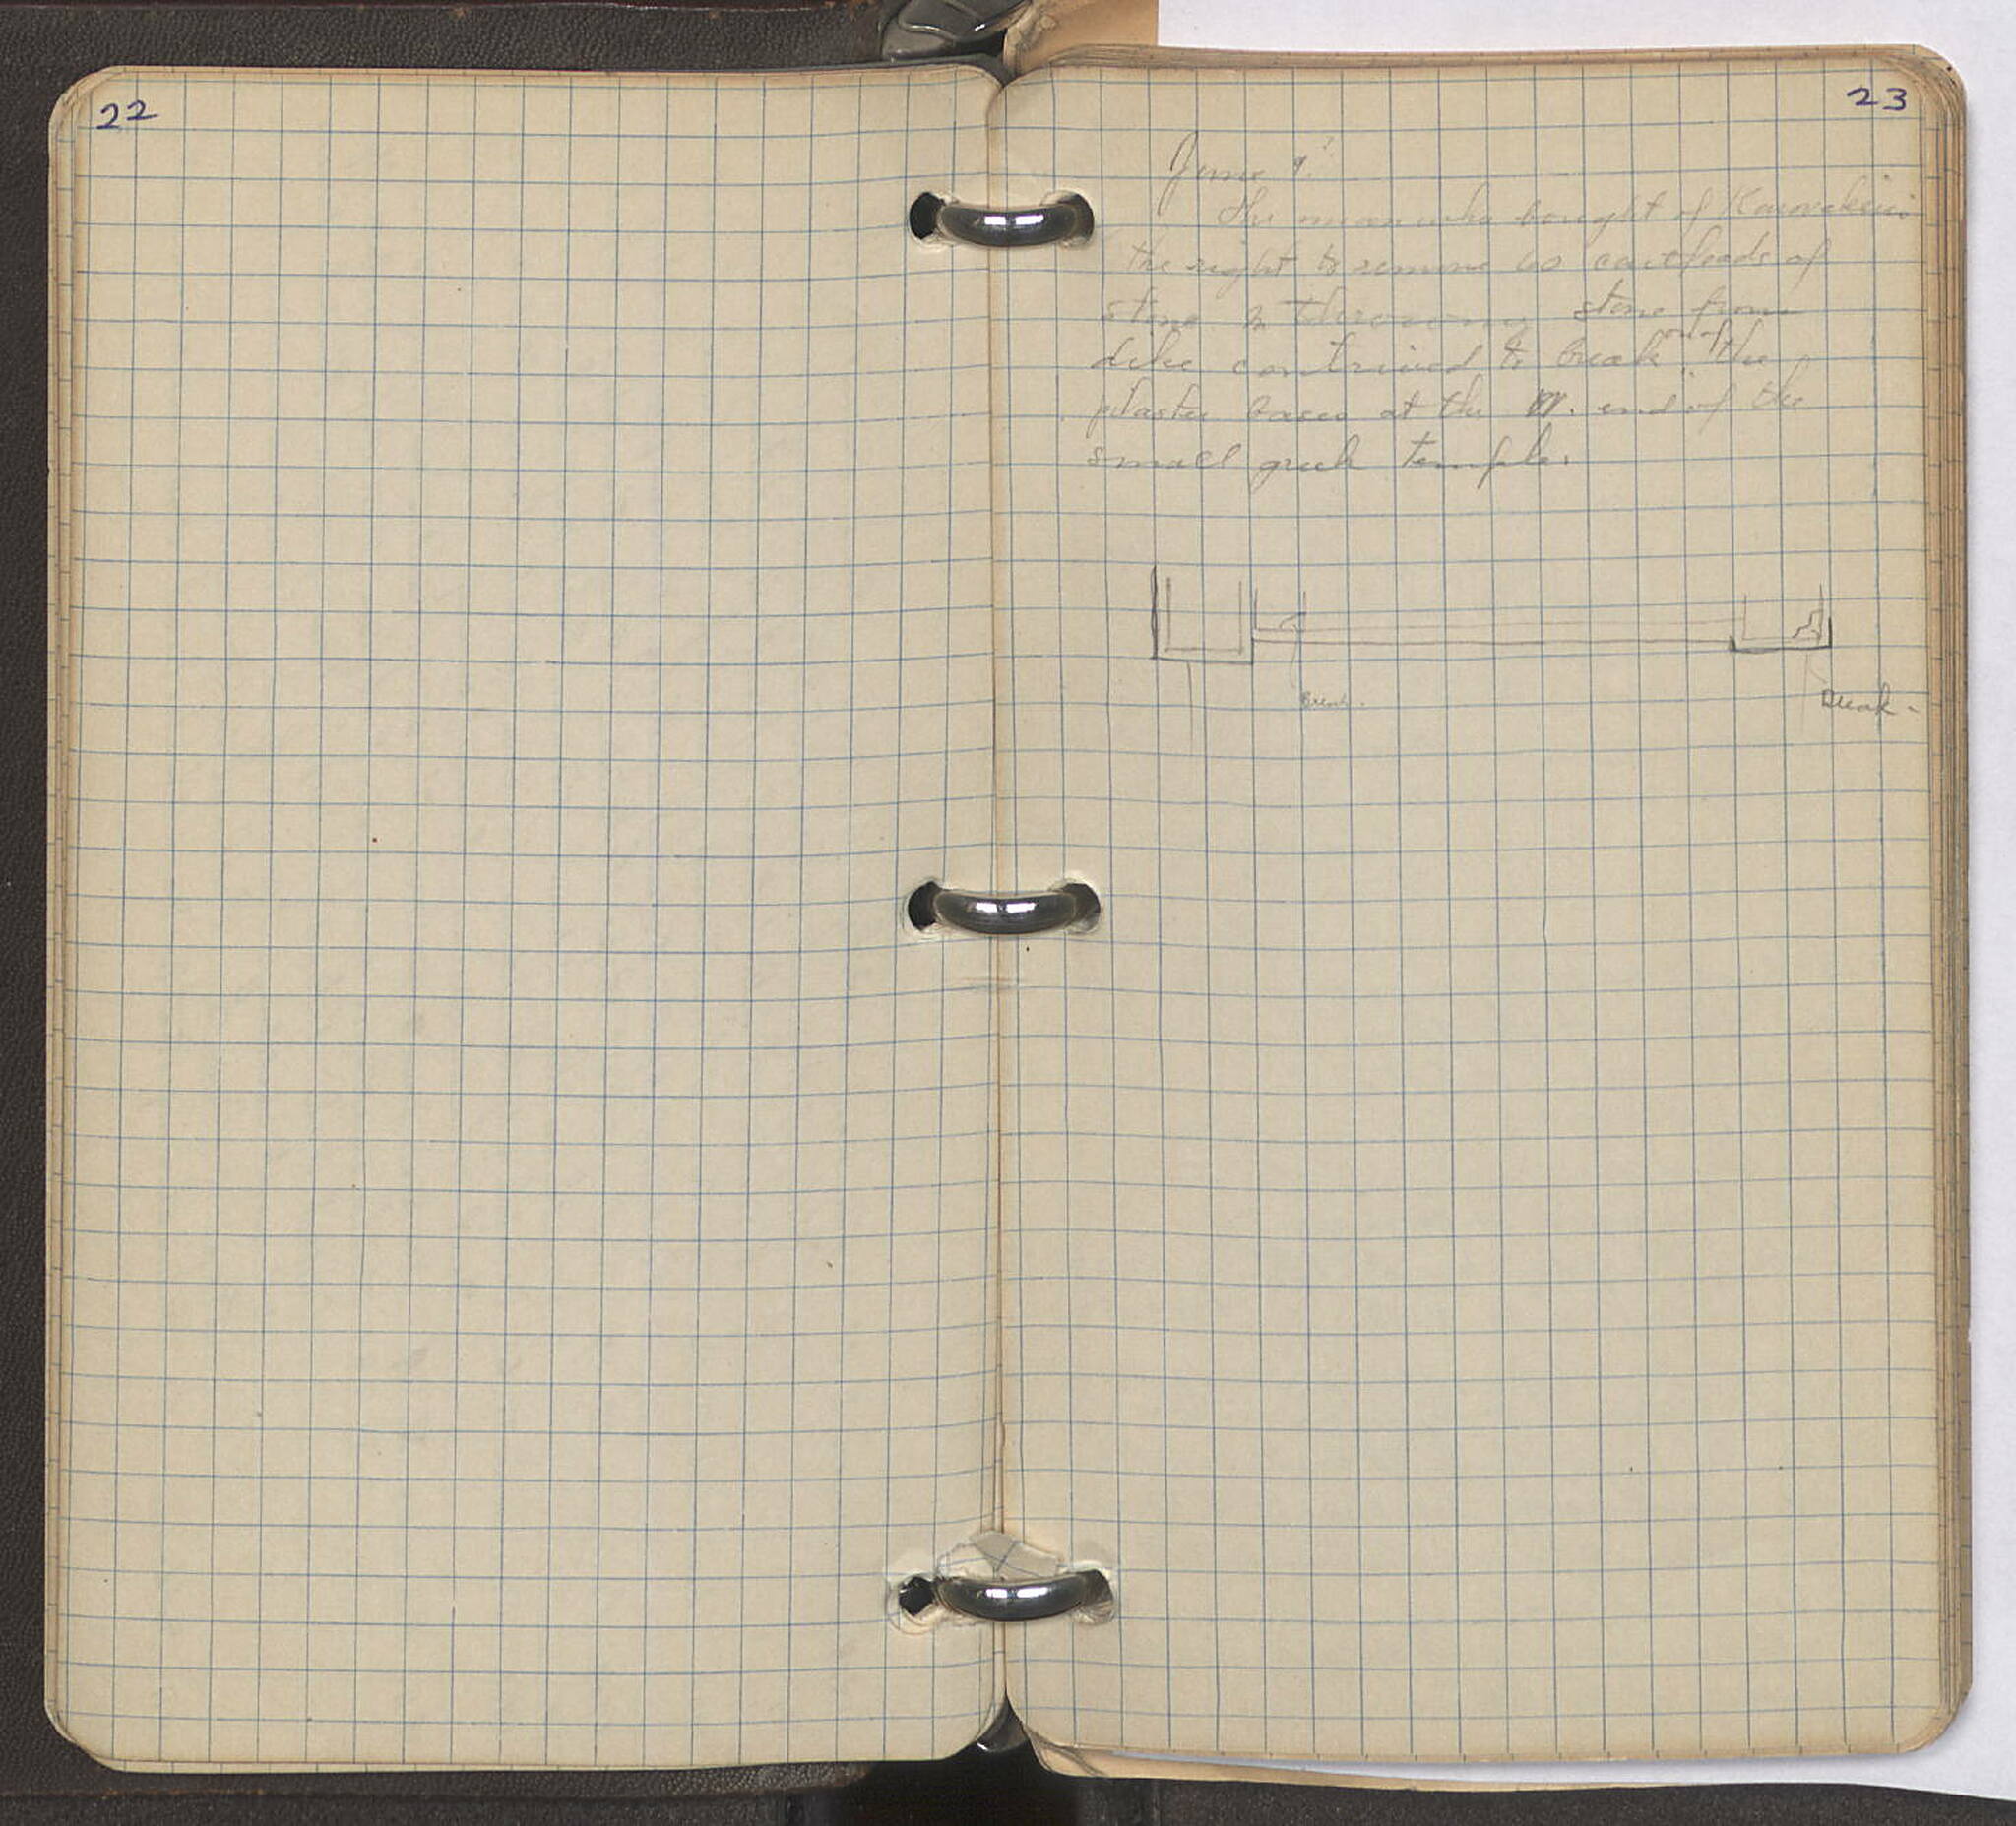 22
23
June 9?
The man who bought of
the right to remove 60 cartloads of
stone in throwing stone from
dike contrived to break out of the
pilaster bases at the W. end of the
small greek temple.
Break.
Break.